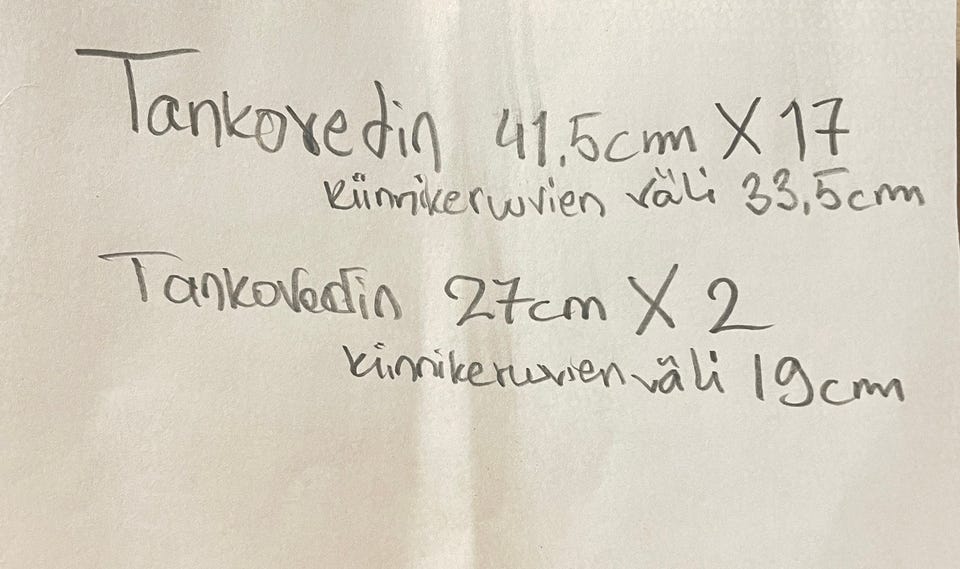 Tankovedin 41,5cm X 17
kiinnikeruuvien väli 33,5cm
Tankovedin 27cm X 2
kiinnikeruuvien väli 19cm